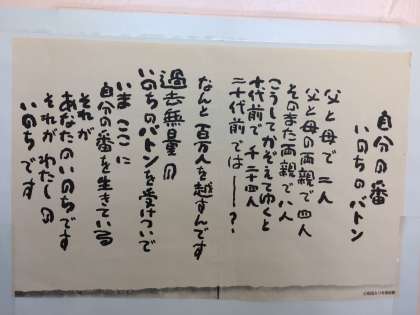 自分の番
いのちのバトン
父と母で 二人
父と母の両親で 四人
そのまた両親で 八人
こうしてかぞえてゆくと
十代前で 千二十四人
二十代前では―?
なんと百万人を越すんです
過去無量の
いのちのバトンを受けついで
いま ここに
自分の番を生きている
それが
あなたのいのちです
それがわたしの
いのちです